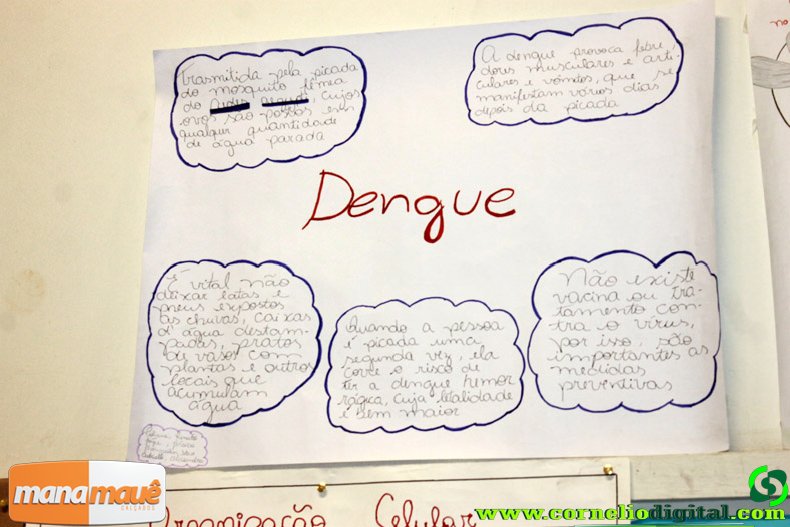 Trasmitida pela picada
do mosquito fêmea
do aedes aegypti, cujos
ovos são postos em
qualquer quantidade
de água parada
A dengue provoca febre,
dores musculares e arti-
culares e vômitos, que se
manifestam vários dias
depois da picada
Dengue
É vital não
deixar latas e
pneus expostos
às chuvas, caixas
d'água destam-
padas, pratos
de vasos com
plantas e outros
locais que
acumulam
água
Quando a pessoa
é picada uma
segunda vez, ela
corre o risco de
ter a dengue hemor
rágica, cuja letalidade
é bem maior
Não existe
vacina ou tra-
tamento con-
tra o vírus,
por isso, são
importantes as
medidas
preventivas
Organização Celular
manamauê
CALÇADOS
www.corneliodigital.com